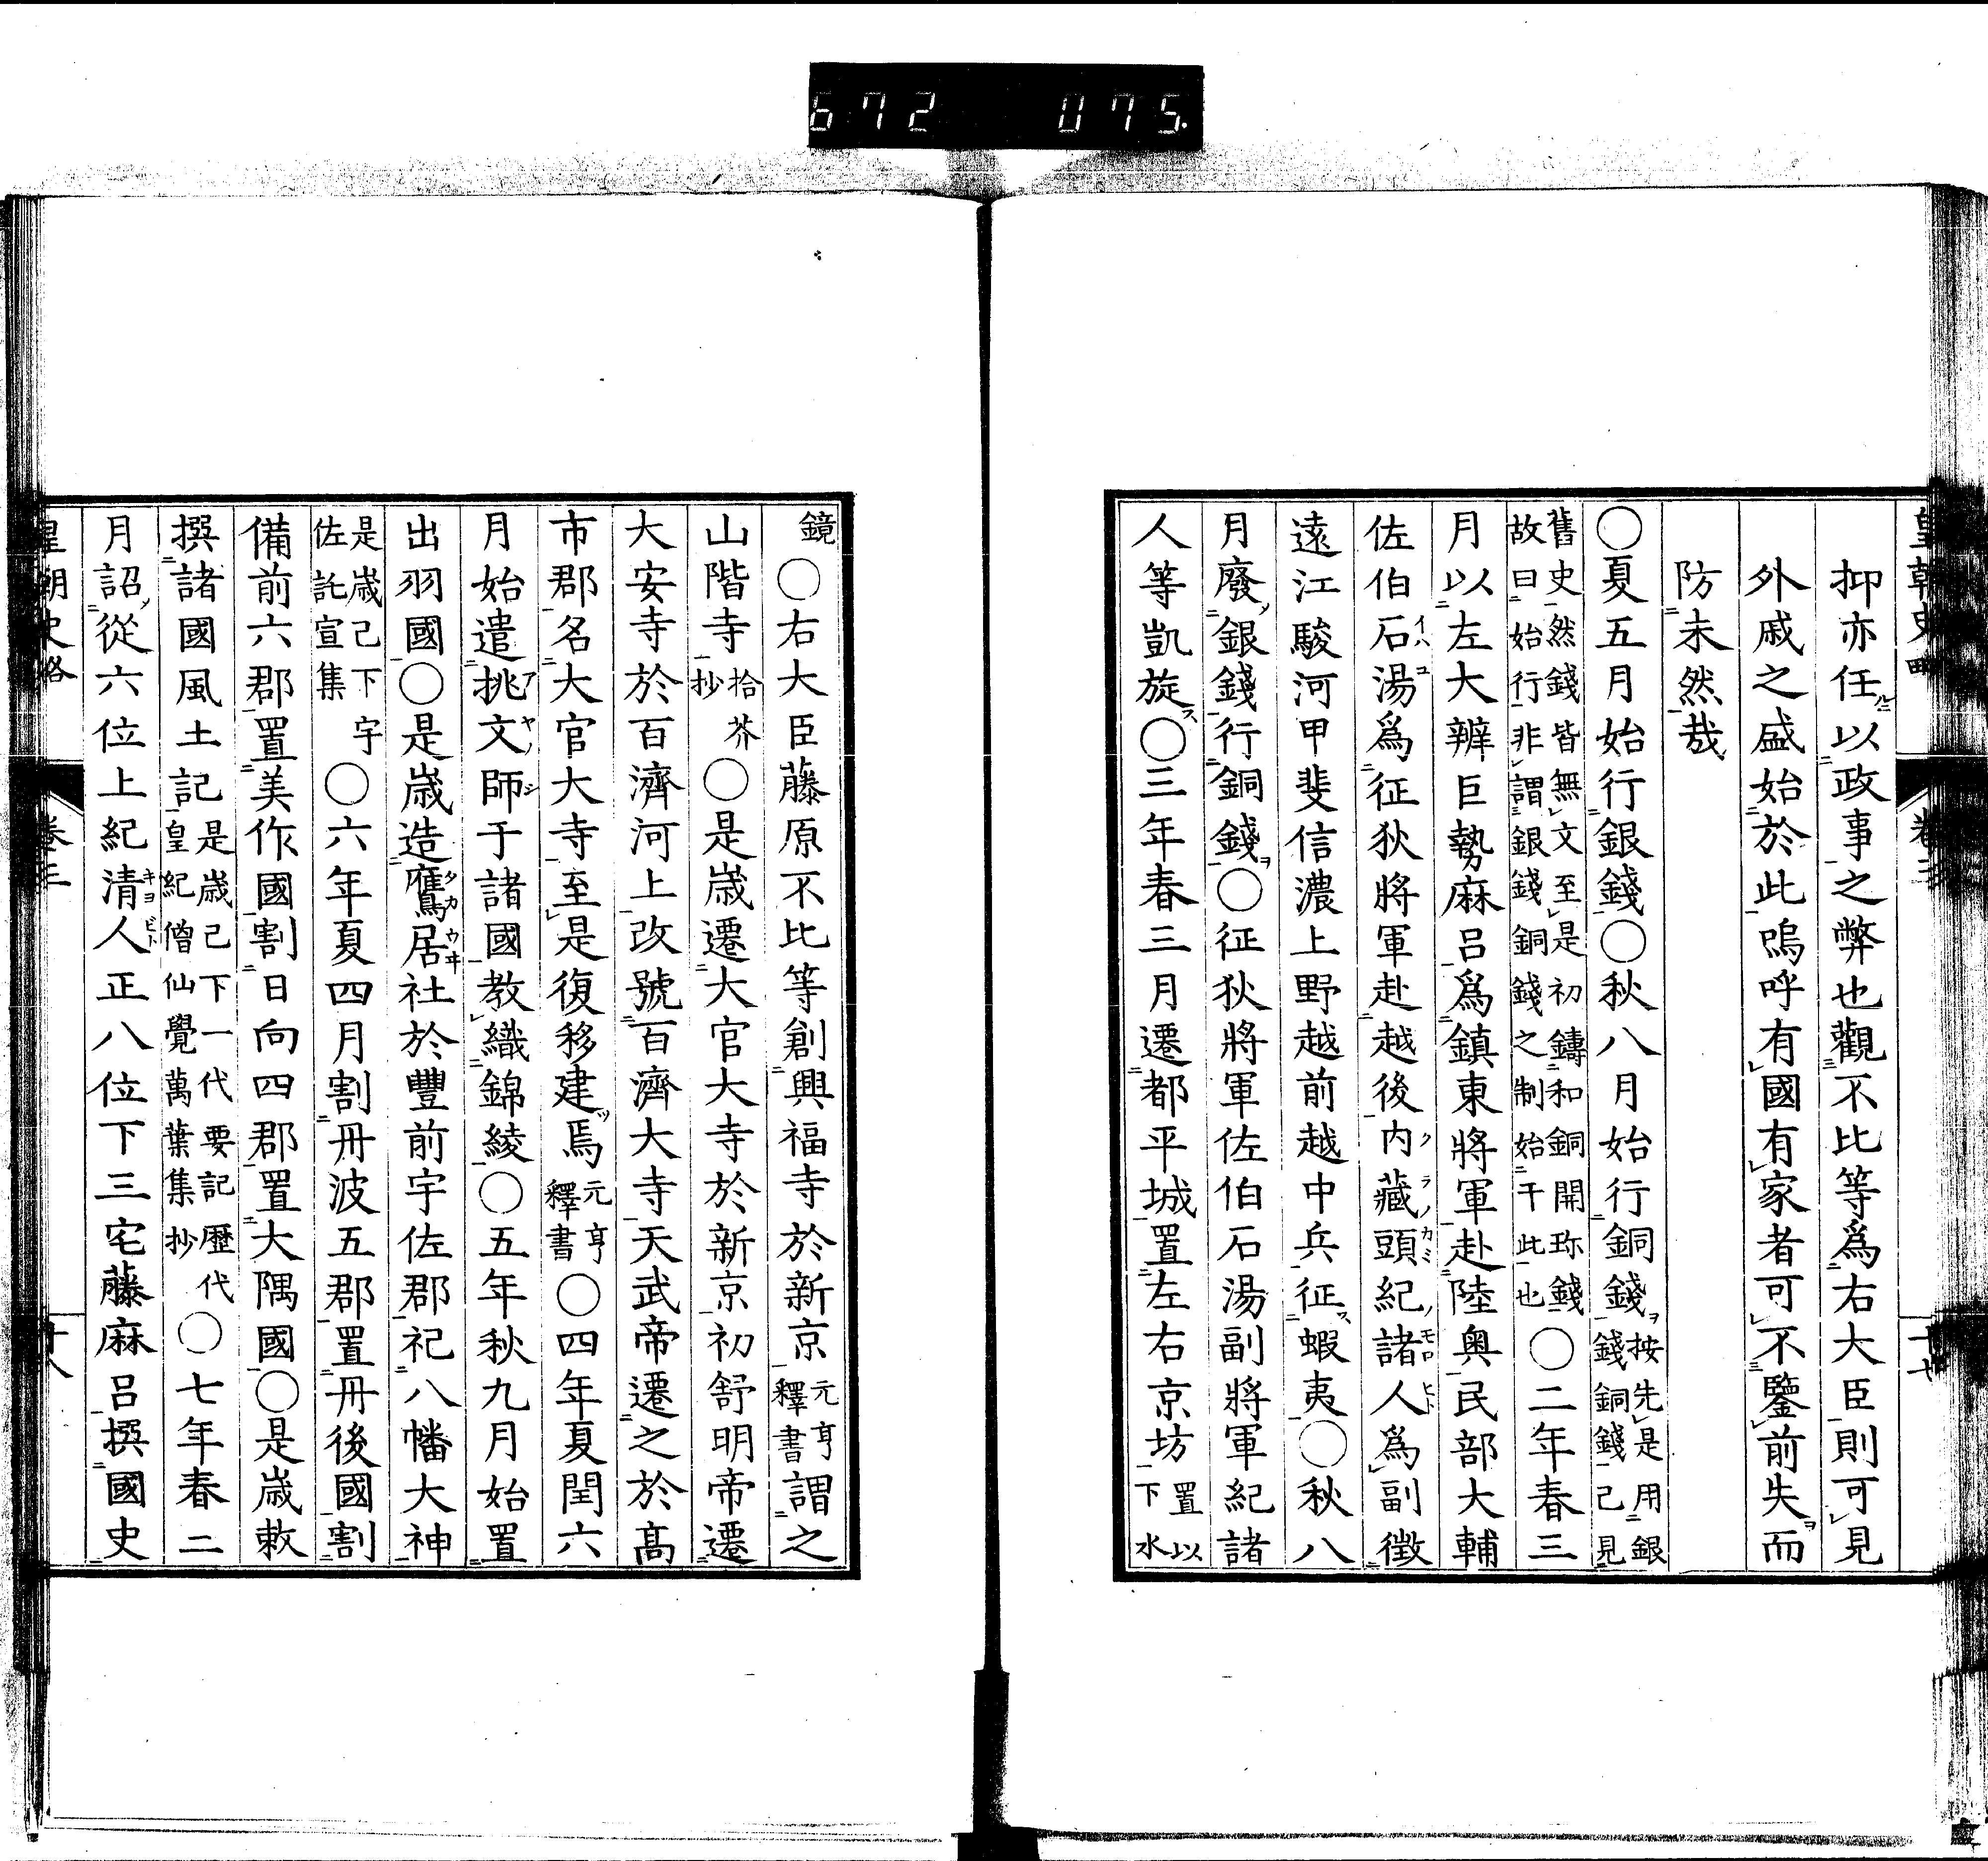 672 075.
皇朝史略 卷三 十七
抑亦任以政事之弊也觀不比等爲右大臣則可見
外戚之盛始於此嗚呼有國有家者可不鑒前失而
防未然哉
○夏五月始行銀錢○秋八月始行銅錢按先是用銀錢銅錢已見
舊史然錢皆無文至是初鑄和銅開珎錢故曰始行非謂銀錢銅錢之制始于此也○二年春三
月以左大辨巨勢麻呂爲鎮東將軍赴陸奧民部大輔
佐伯石湯爲征狄將軍赴越後内藏頭紀諸人爲副徵
遠江駿河甲斐信濃上野越前越中兵征蝦夷○秋八
月廢銀錢行銅錢○征狄將軍佐伯石湯副將軍紀諸
人等凱旋○三年春三月遷都平城置左右京坊置以下水
鏡○右大臣藤原不比等創興福寺於新京元亨釋書謂之
山階寺拾芥抄○是歲遷大官大寺於新京初舒明帝遷
大安寺於百濟河上改號百濟大寺天武帝遷之於高
市郡名大官大寺至是復移建焉元亨釋書○四年夏閏六
月始遣挑文師于諸國教織錦綾○五年秋九月始置
出羽國○是歲造鷹居社於豐前宇佐郡祀八幡大神
是歲已下宇佐託宣集○六年夏四月割丹波五郡置丹後國割
備前六郡置美作國割日向四郡置大隅國○是歲敕
撰諸國風土記是歲已下一代要記歷代皇紀僧仙覺萬葉集抄○七年春二
月詔從六位上紀清人正八位下三宅藤麻呂撰國史
皇朝史略 卷三 十八